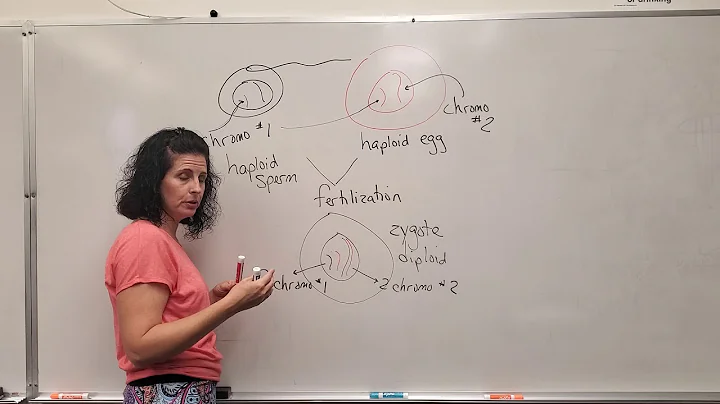 of drinking
chromo #1
chromo
#2
haploid
sperm
haploid egg
fertilization
zygote
diploid
chromo #1
2 chromo #2